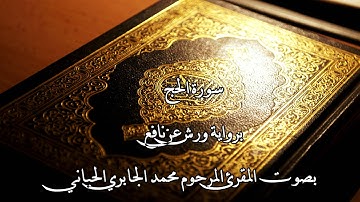 سورة الحج
برواية ورش عن نافع
بصوت المقرئ المرحوم محمد الجابري الحياني